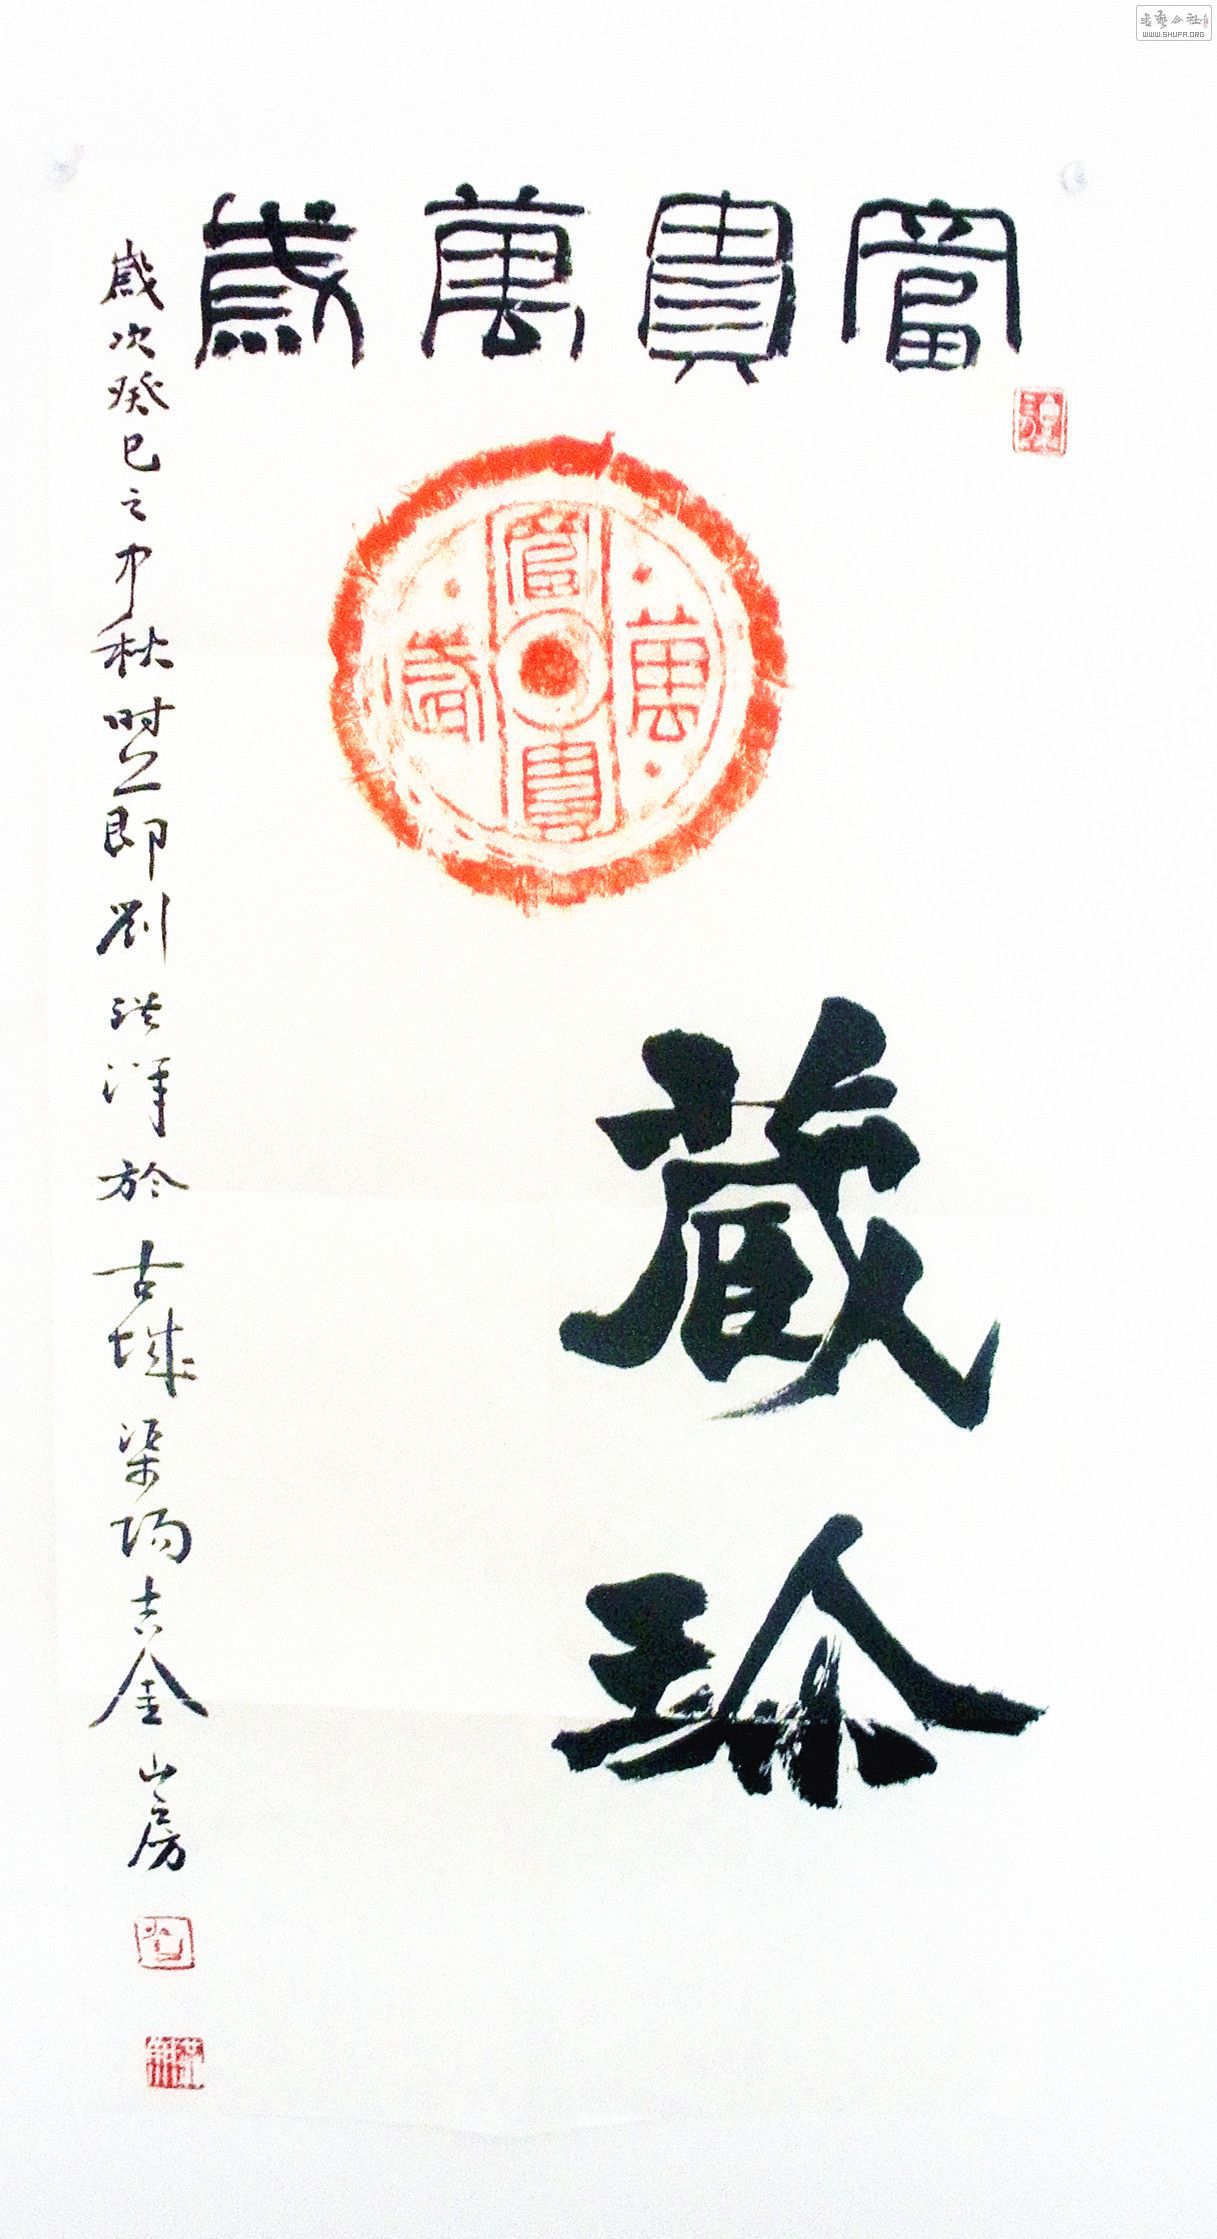 富貴萬歲
富貴萬歲
藏珍
歲次癸巳之中秋時之即劉洪澤於古城渠陽吉金山房
書藝公社
WWW.SHUFA.ORG